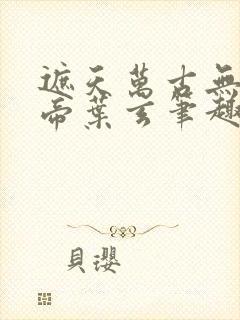 遮天萬古無
帝葉玄筆趣
貝瓔